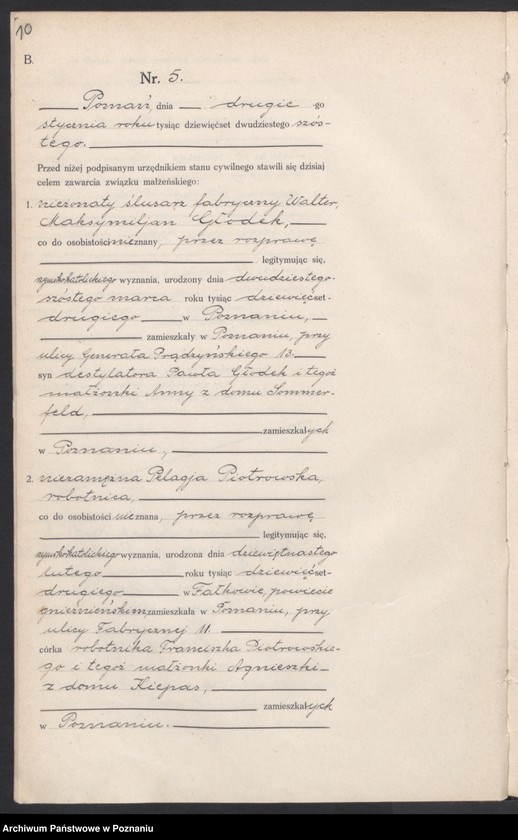 10
B.
Nr. 5.
Poznań, dnia drugie go
stycznia roku tysiąc dziewięćset dwudziestego szós-
tego.
Przed niżej podpisanym urzędnikiem stanu cywilnego stawili się dzisiaj
celem zawarcia związku małżeńskiego:
1. nieżonaty ślusarz fabryczny Walter,
Maksymiljan Głodek,
co do osobistości nieznany, przez rozprawę
legitymując się,
rzymskokatolickiego wyznania, urodzony dnia dwudziestego-
szóstego marca roku tysiąc dziewięćset-
drugiego w Poznaniu,
zamieszkały w Poznaniu, przy
ulicy Generała Prądzyńskiego 13.
syn destylatora Pawła Głodek i tegoż
małżonki Anny z domu Sommer-
feld,
zamieszkałych
w Poznaniu,
2. niezamężna Pelagja Piotrowska,
robotnica,
co do osobistości nieznana, przez rozprawę
legitymując się,
rzymskokatolickiego wyznania, urodzona dnia dziewiętnastego
lutego roku tysiąc dziewięćset-
drugiego w Fałkowie, powiecie
gnieźnieńskim, zamieszkała w Poznaniu, przy
ulicy Fabrycznej 11.
córka robotnika Franciszka Piotrowskie-
go i tegoż małżonki Agnieszki
z domu Kiepas,
zamieszkałych
w Poznaniu.
Archiwum Państwowe w Poznaniu